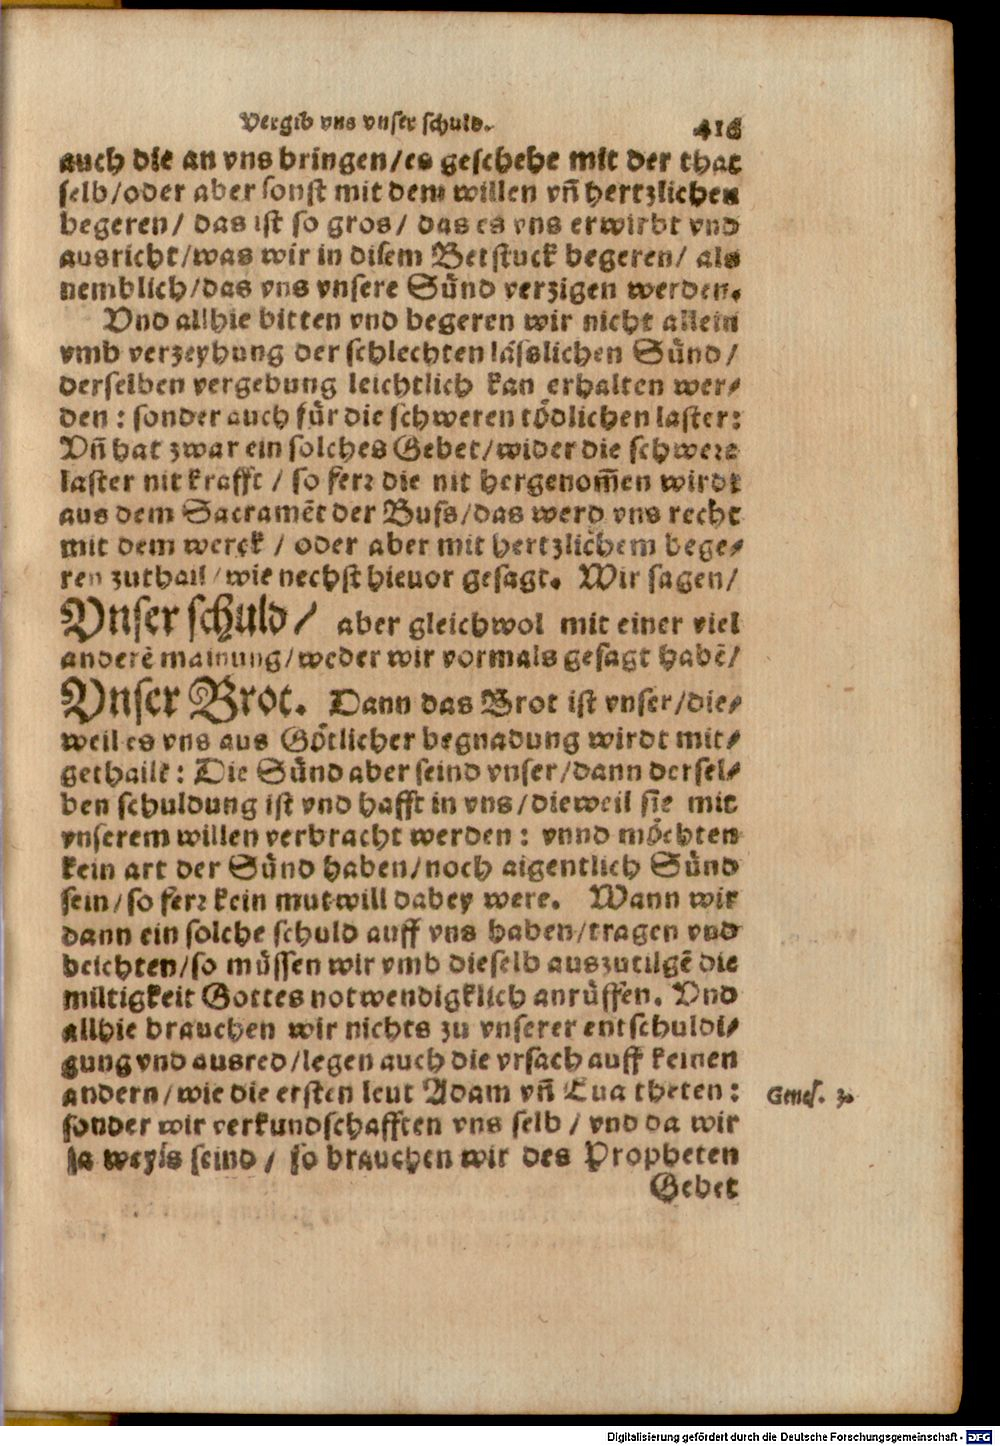 Vergib vns vnser schuld. 416
auch die an vns bringen/es geschehe mit der that
selb/oder aber sonst mit dem willen vñ hertzlichen
begeren/ das ist so gros/ das es vns erwirbt vnd
ausricht/was wir in disem Betstuck begeren/ als
nemblich/das vns vnsere Sünd verzigen werden.
Vnd allhie bitten vnd begeren wir nicht allein
vmb verzeyhung der schlechten lässlichen Sünd/
derselben vergebung leichtlich kan erhalten wer-
den: sonder auch für die schweren tödlichen laster:
Vñ hat zwar ein solches Gebet/wider die schwere
laster nit krafft/ so ferr die nit hergenom̃en wirdt
aus dem Sacramēt der Buss/das werd vns recht
mit dem werck/ oder aber mit hertzlichem bege-
ren zuthail/wie nechst hieuor gesagt. Wir sagen/
Vnser schuld/ aber gleichwol mit einer viel
anderē mainung/weder wir vormals gesagt habē/
Vnser Brot. Dann das Brot ist vnser/die-
weil es vns aus Götlicher begnadung wirdt mit-
gethailt: Die Sünd aber seind vnser/dann dersel-
ben schuldung ist vnd hafft in vns/dieweil sie mit
vnserem willen verbracht werden: vnnd möchten
kein art der Sünd haben/noch aigentlich Sünd
sein/so ferr kein mutwill dabey were. Wann wir
dann ein solche schuld auff vns haben/tragen vnd
beichten/so müssen wir vmb dieselb auszutilgē die
miltigkeit Gottes notwendigklich anrüffen. Vnd
allhie brauchen wir nichts zu vnserer entschuldi-
gung vnd ausred/legen auch die vrsach auff keinen
andern/wie die ersten leut Adam vñ Eua theten: Genes. 3.
sonder wir verkundschafften vns selb/ vnd da wir
ja weyss seind/ so brauchen wir des Propheten
Gebet
Digitalisierung gefördert durch die Deutsche Forschungsgemeinschaft - DFG